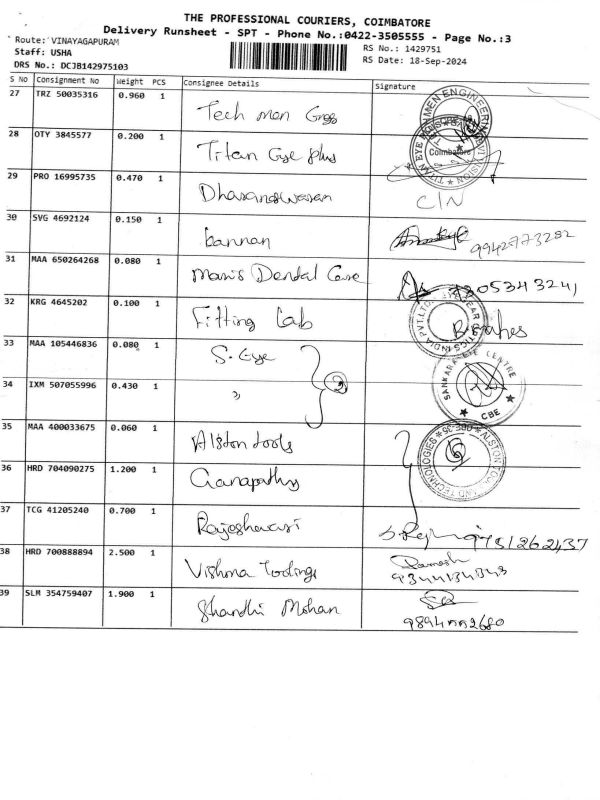 THE PROFESSIONAL COURIERS, COIMBATORE
Delivery Runsheet - SPT - Phone No.:0422-3505555 - Page No.:3
Route: VINAYAGAPURAM
Staff: USHA
DRS No.: DCJB142975103
RS No.: 1429751
RS Date: 18-Sep-2024
S No Consignment No Weight PCS Consignee Details Signature
27 TRZ 50035316 0.960 1 Tech men
28 OTY 3845577 0.200 1 Titan Eye plus
Coimbatore
29 PRO 16995735 0.470 1 C/N
30 SVG 4692124 0.150 1 kannan 9942773282
31 MAA 650264268 0.080 1 Dental Care 7305343241
32 KRG 4645202 0.100 1 Fitting Lab
33 MAA 105446836 0.080 1 S. Eye
SANKARA EYE CENTRE
CBE
34 IXM 507055996 0.430 1 " 2
35 MAA 400033675 0.060 1 Alston tools
36 HRD 704090275 1.200 1 Ganapathy
37 TCG 41205240 0.700 1 Rajeshwari
38 HRD 700888894 2.500 1 Vishma Toolings Ramesh
9344134343
39 SLM 354759407 1.900 1 Shandhi Mohan